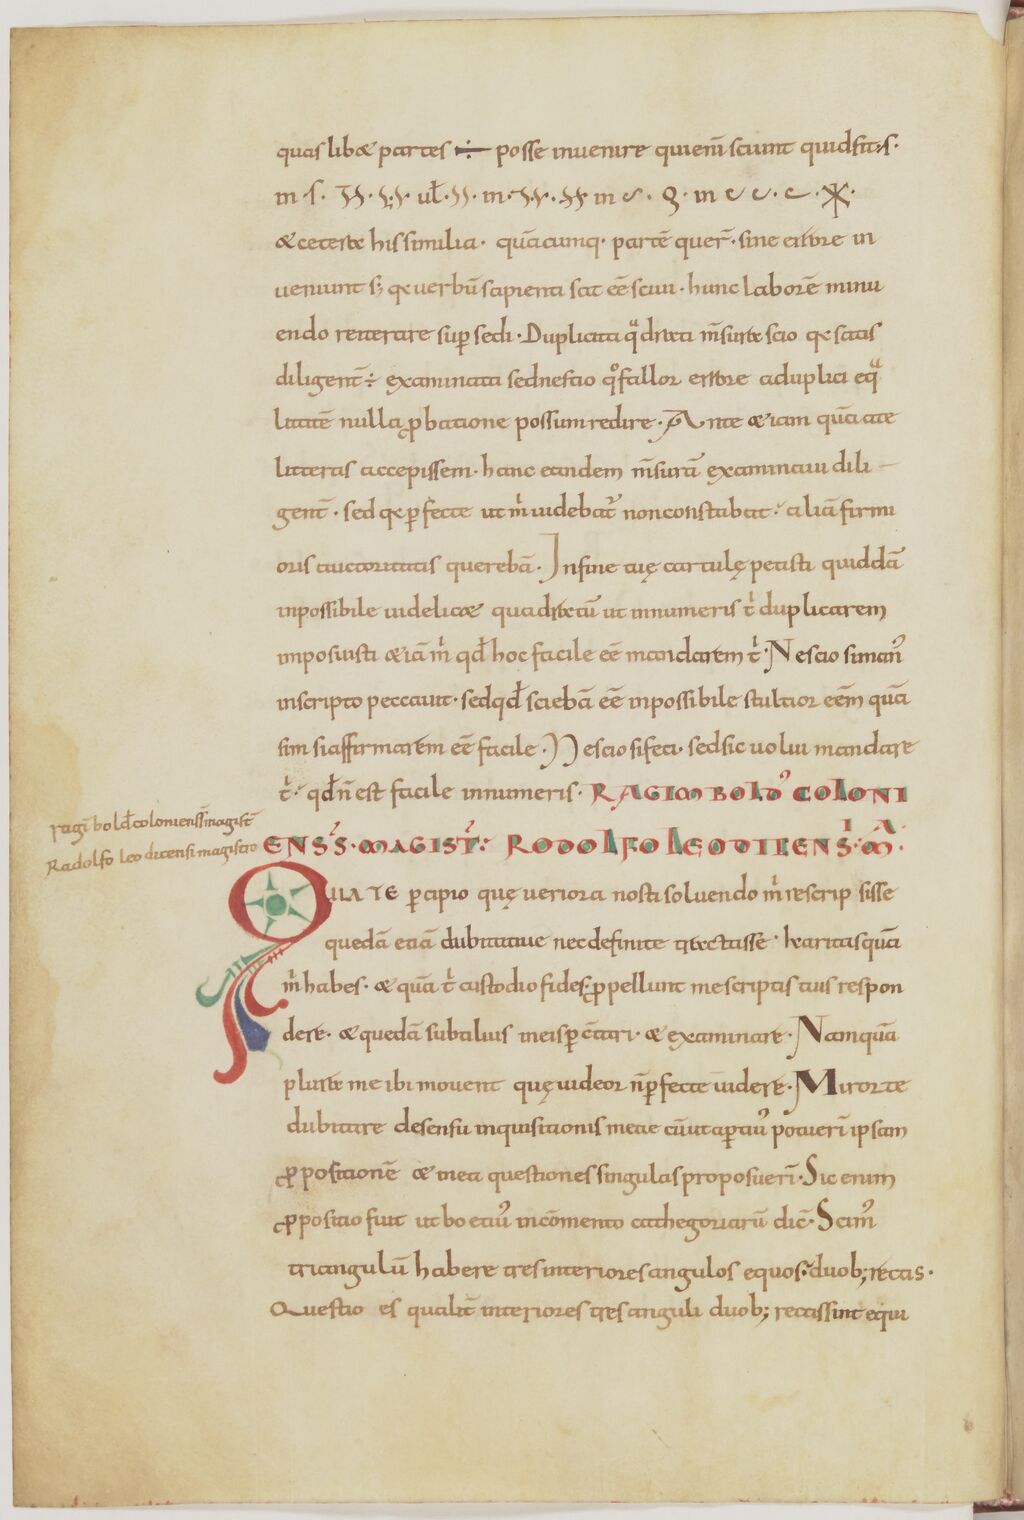 quas lib& partes ÷ posse inuenire qui eni᷒ sciunt quid sit s·
& cetere his similia· quãcumq· partẽ quer̃· sine errore in
ueniunt s; qa uerbũ sapienti sat eẽ sciui· hunc laborẽ minu
endo reiterare sup sedi· Duplicita qͣdrata m̃sure scio qa satis
diligent̃ ÷ examinata sed nescio qͦ fallor errore a duplici eqͣ
litatẽ nulla ꝓbatione possum redire· Ante & iam quã a te
litteras accepissem· hanc eandem m̃surã examinaui dili
gent̃· sed qa ꝑfecte ut mͥ uidebat᷒ non constabat· aliã firmi
oris auctoritatis querebã· In fine tuę cartulę petisti quiddã
inpossibile uidelic& quadratũ ut in numeris tͥ duplicarem
imposuisti & iã mͥ qđ hoc facile eẽ mandarem tͥ· Nescio si man᷒
in scripto peccauit· sed qđ sciebã eẽ inpossibile stultior eẽm quã
sim si affirmarem eẽ facile· Nescio si feci· sed sic uolui mandare
tͥ· qđ ñ est facile in numeris· RAGIMBOLD᷒ COLONI
ragĩbold᷒ coloniens̃ magist̃
Radolfo leodicensi magistro
ENS᷒S· MAGIST᷒· RODOLFO LEODICENSI· M̃A·
QUIA TE ꝑcipio quę ueriora nosti soluendo mͥ rescripsisse
quedã etiã dubitatiue nec definite tractasse· karitas quã
mͥ habes· & quã tͥ custodio fides; ꝓpellunt me scriptis tuis respon
dere· & quedã sub alius ꝑc̃tari· & examinare· Nam quã
plura me ibi mouent quę uideor ñ ꝑfecte uidere· Miror te
dubitare de sensu inquisitionis meae cũ ut aptiu᷒ potueri᷒ ipsam
ꝓpositionẽ & mea questiones singulas proposueri᷒· Sic enim
ꝓpositio fuit ut boetiu᷒ in cõmento cathegoriarũ dic̃· Scim᷒
triangulũ habere tres interiores angulos equos· duob; rectis·
Questio es qualit᷒ interiores tres anguli duob; rectis sint equi